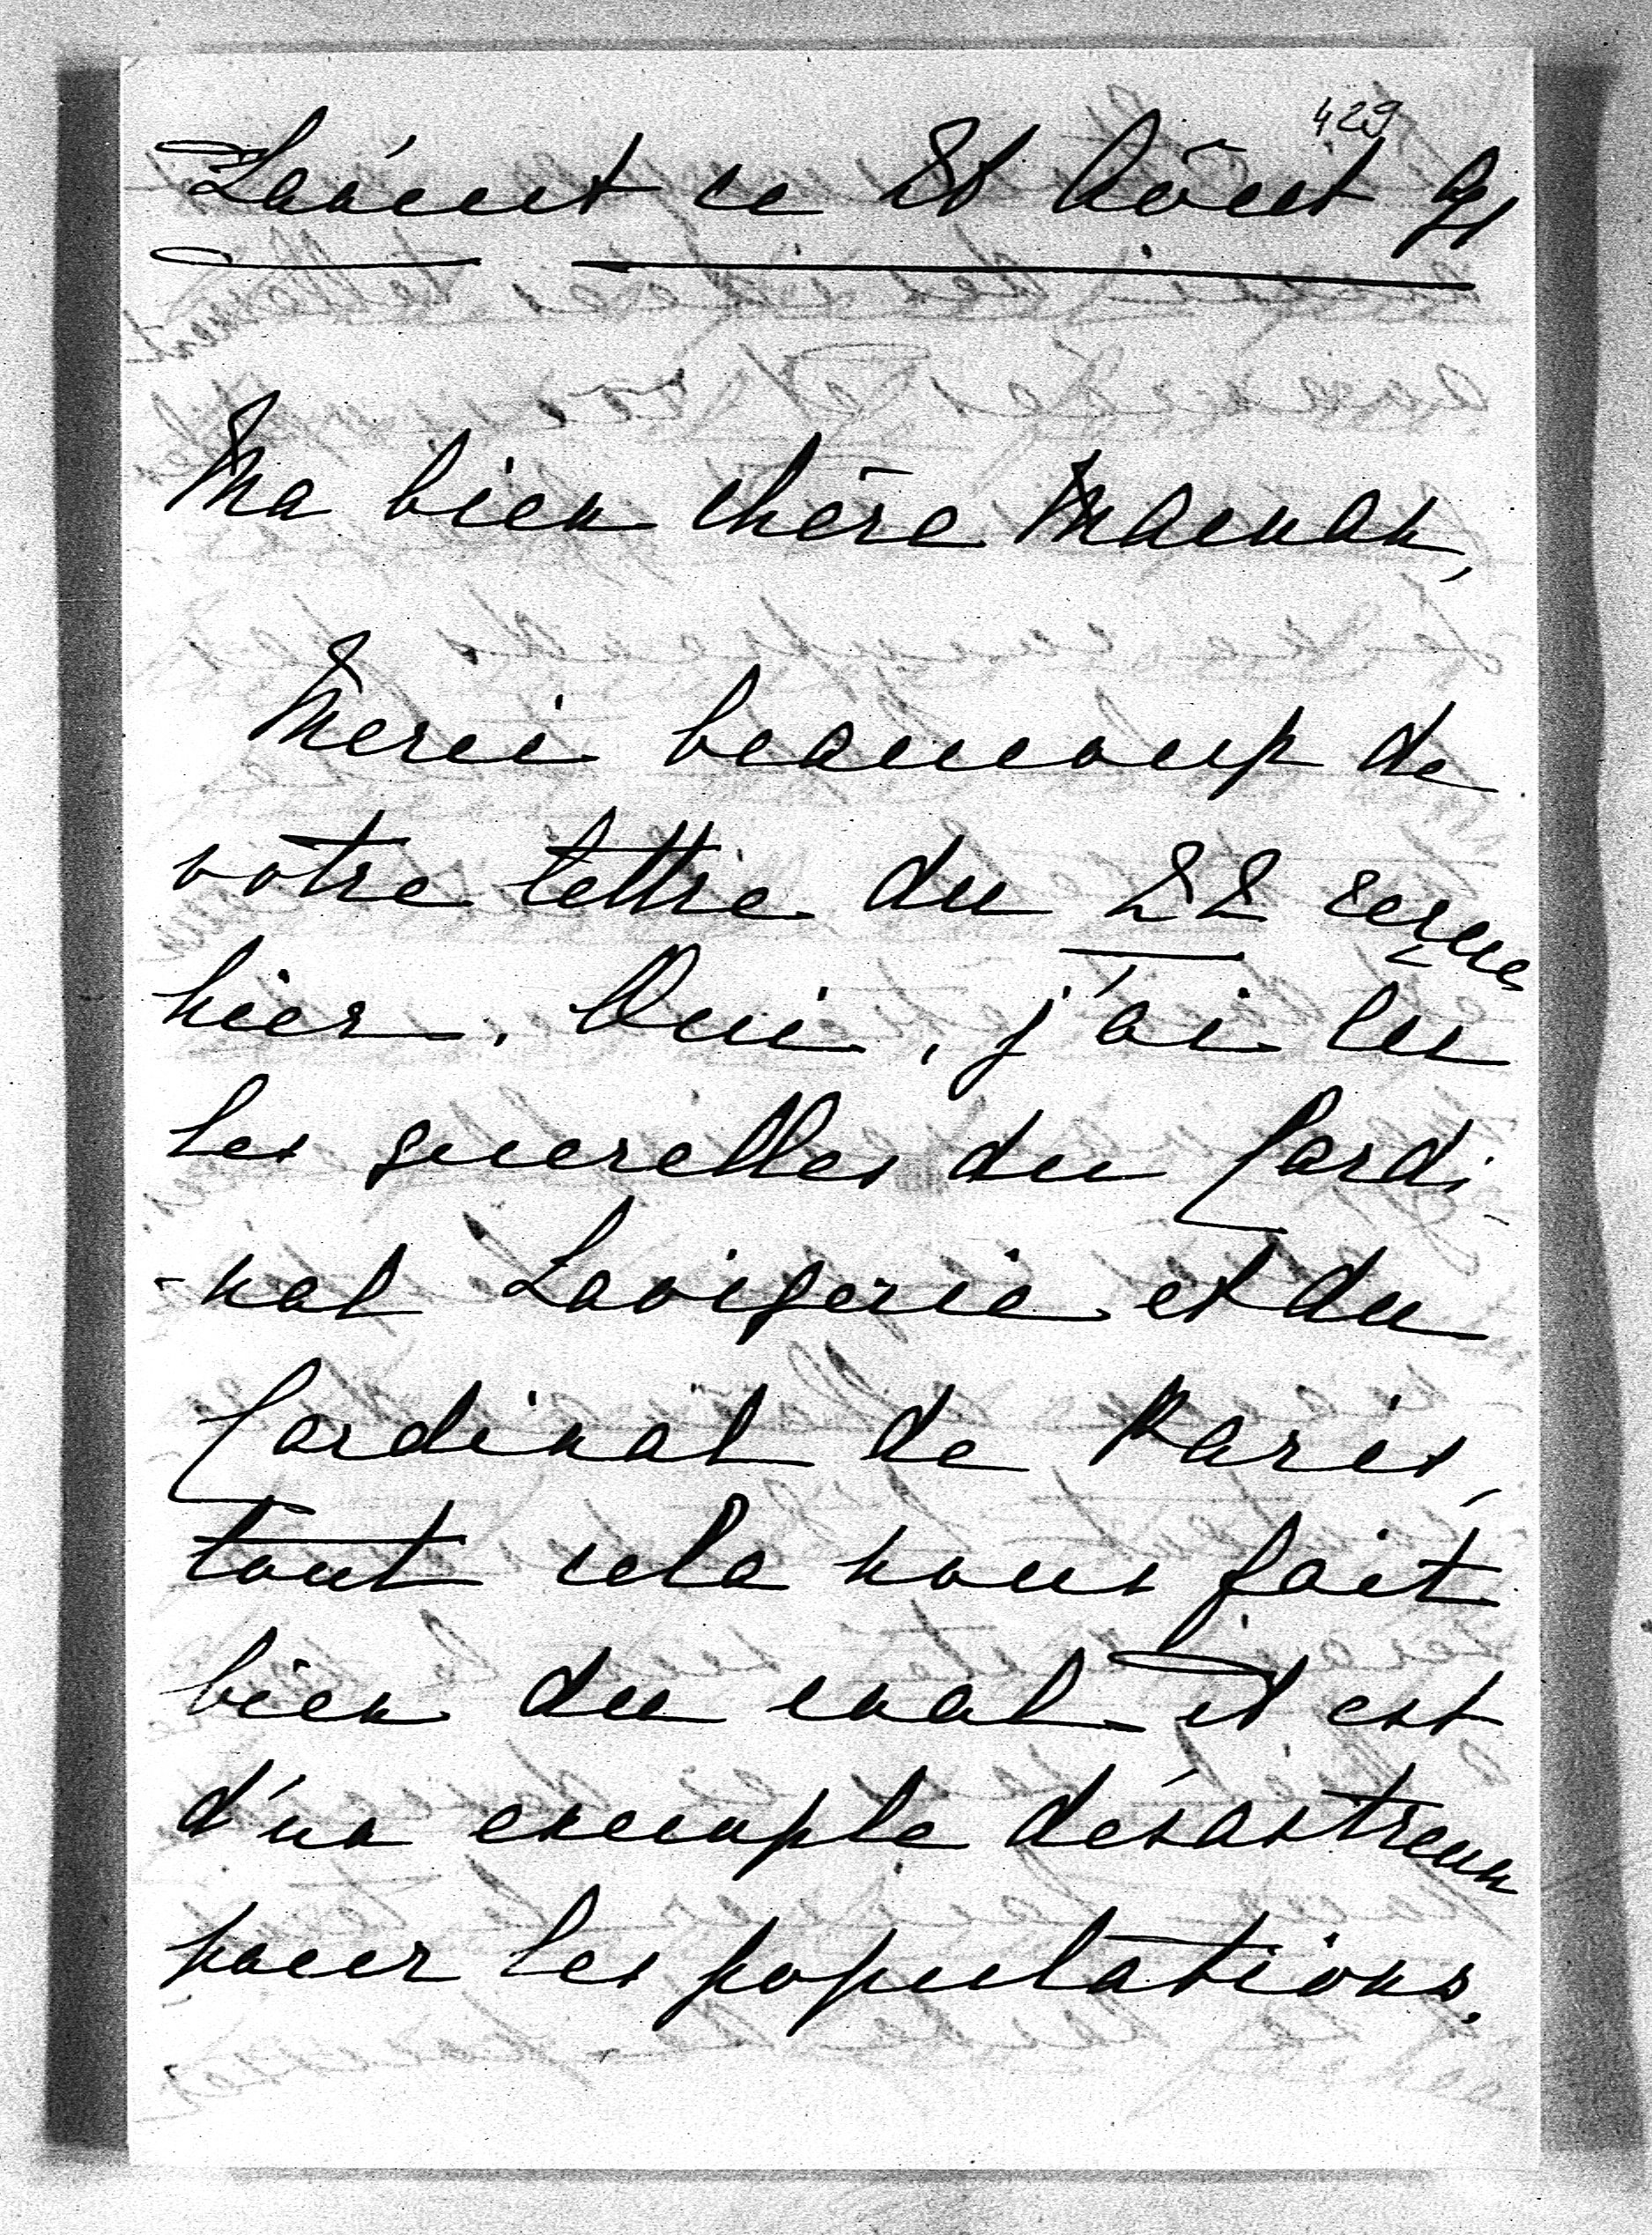 429
ce 28 Août 91
Ma bien chère Maman,
Merci beaucoup de
votre lettre du 22 reçue
hier. Oui, j'ai lu
les querelles du Cardi
-nal Lavigerie et du
Cardinal de Paris,
tout cela nous fait
bien du mal et est
d'un exemple désastreux
pour les populations.